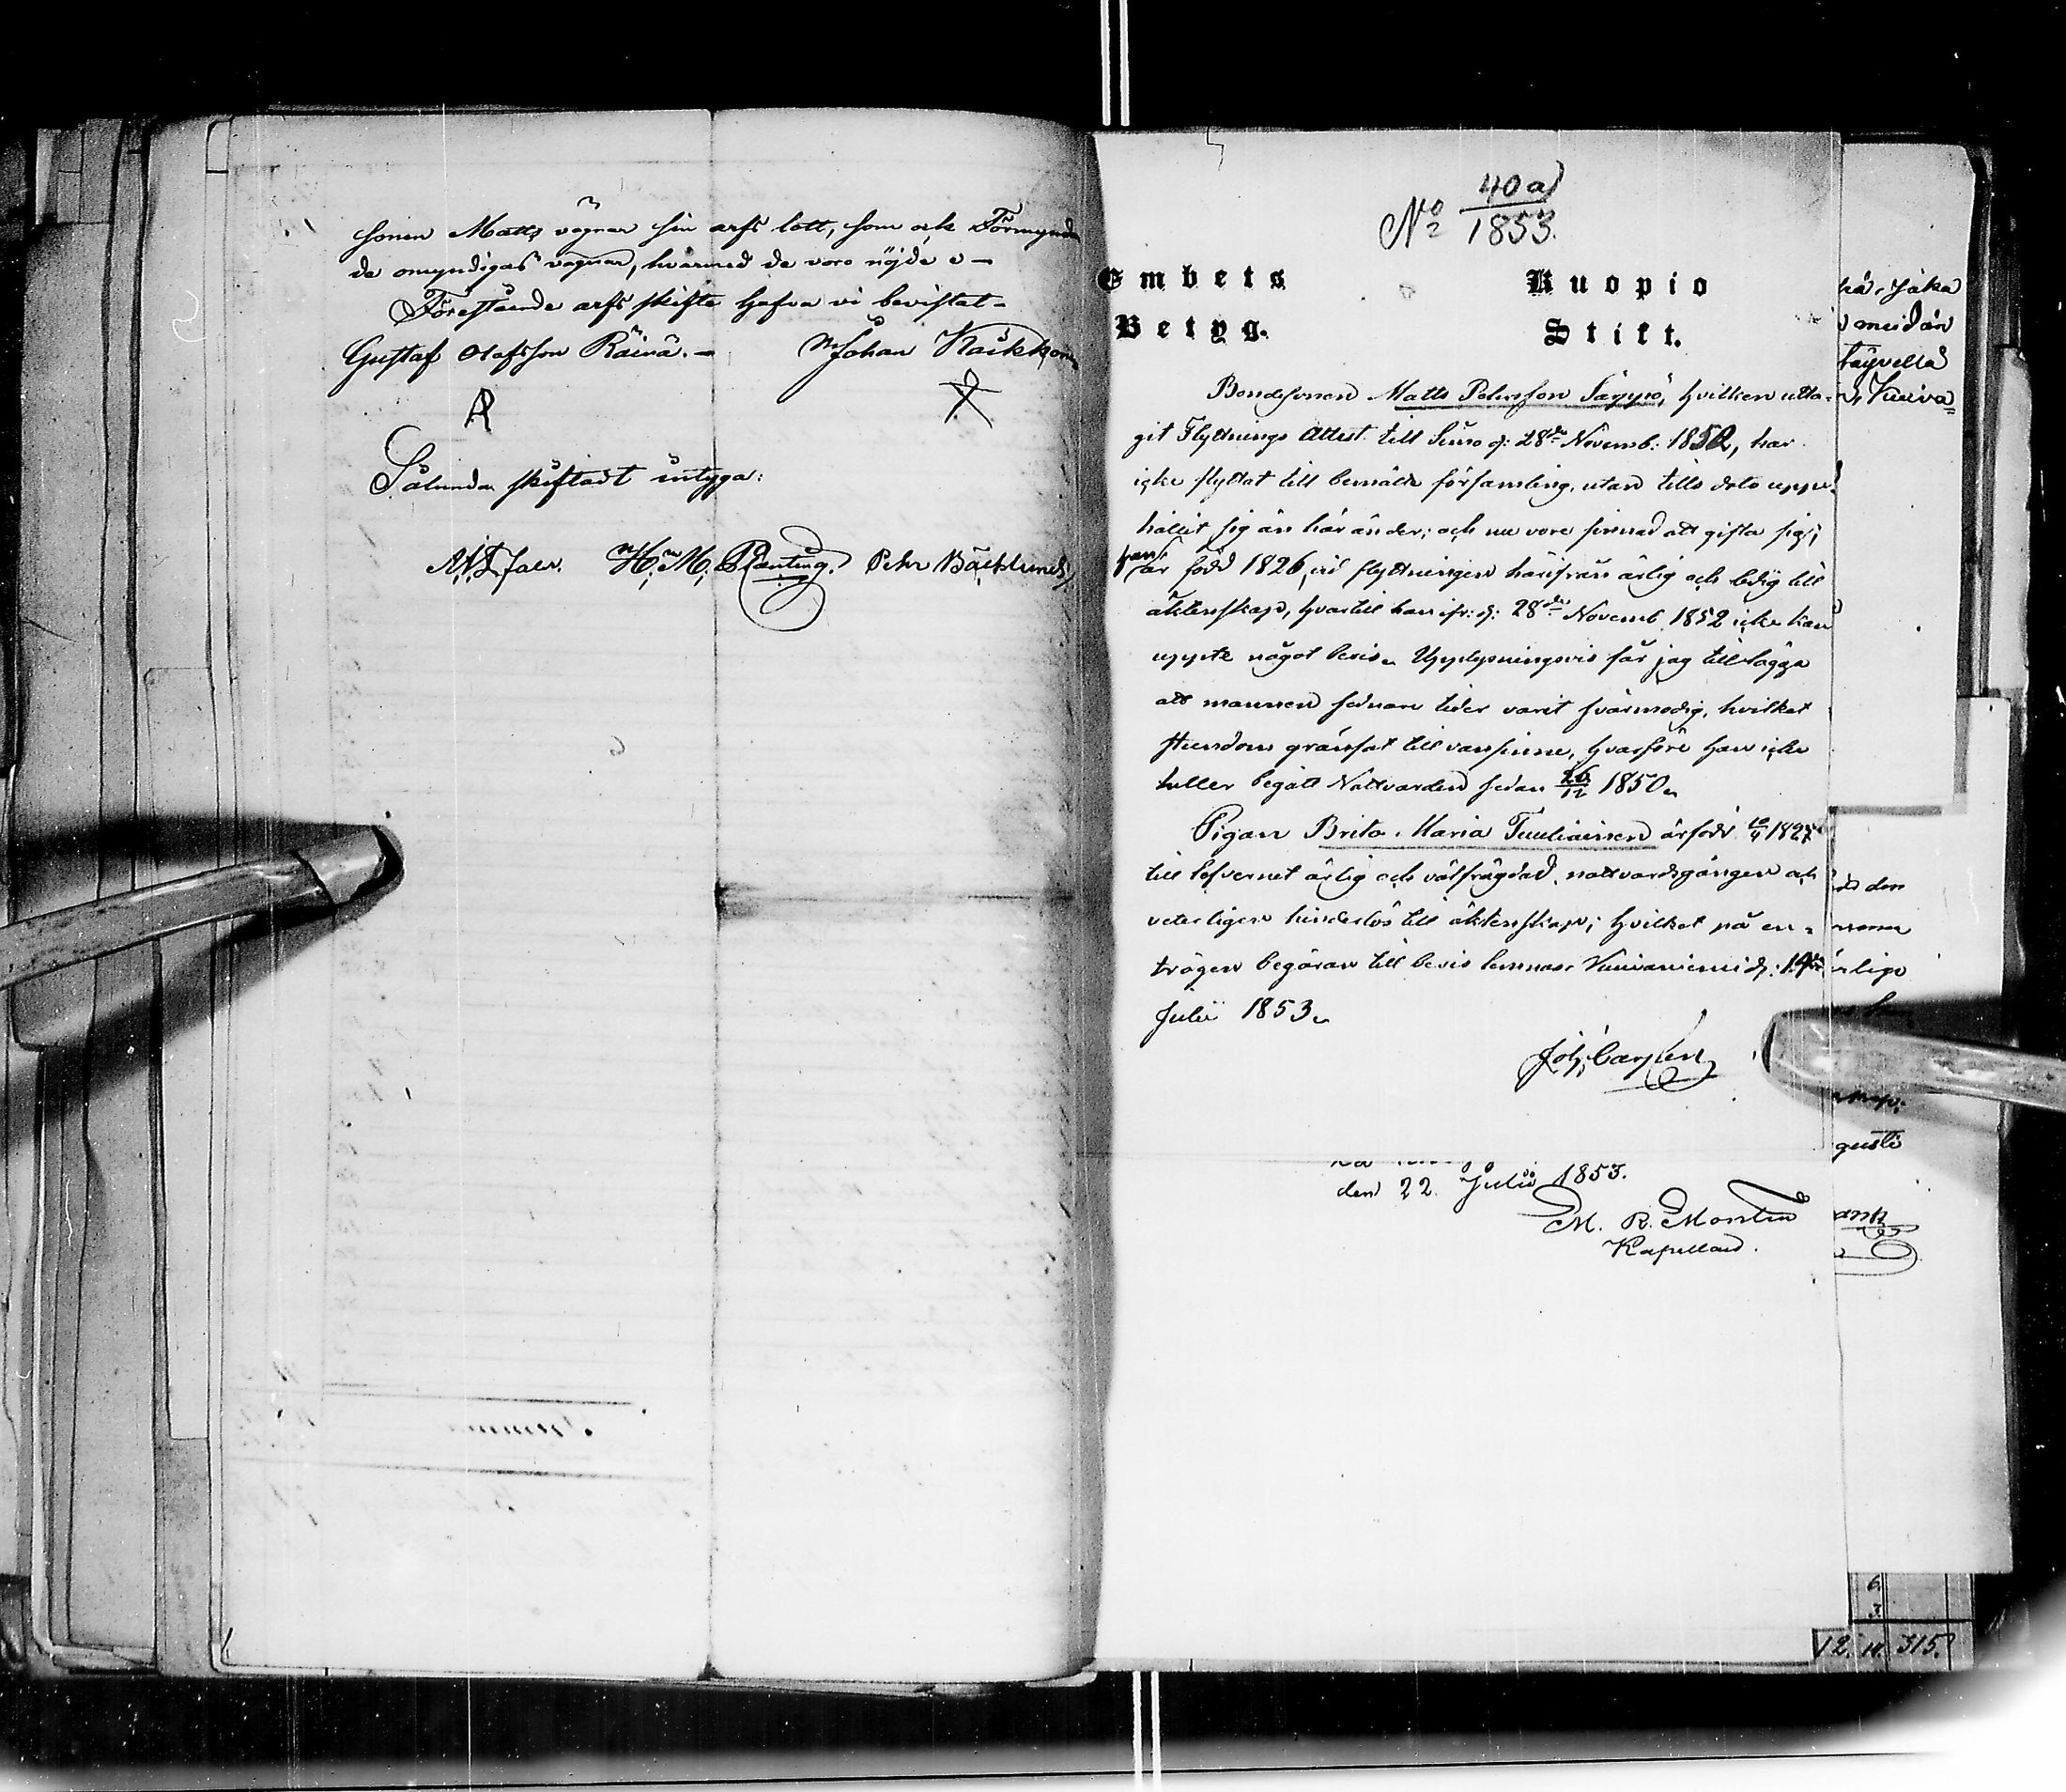 sonen Matts vägnar sin arfs lott, som ock Förmynda
de omyndigas vägnar, hvarmed de voro nöjde
Förestående arfs skifte hafva vi bevistat
Gustaf Olafsson Räinä. Johan Käkkönen
Sålunda skiftadt intyga:
H. M. Planting. Petr Bäcklund
No 40 a)
1853.
Embets Kuopio
Betyg. Stift.
Bondesonen Matts Petersson Säppä, hvilken utta-
git Flyttnings Attest till Simo d: 28de Novemb: 1852, har
icke flyttat till bemälde församling, utan tills dato uppe-
hållit sig än här änder; och nu vore sinnad att gifta sig;
han är född 1826, vid flyttningen härifrån ärlig och ledig till
äktenskap, hvartill han ifr: d: 28de Novemb. 1852 icke kan
uppte något bevis. Upplysningsvis får jag tillägga
att mannen sednare tider varit svårmodig, hvilket
stundom gränsat till vansinne, hvarföre han icke
heller begått Nattvarden sedan 26/12 1850.
Pigan Brita Maria Tuuliainen är född 1827
till lefvernet ärlig och välfrägdad, nattvardsgången och
veterligen hinderlös till äktenskap; hvilket på en-
trägen begäran till bevis lemnas. Kuivaniemi d: 14de
Julii 1853.
Joh. Carlén
den 22 Julii 1853.
M. R. Montin
Kapellan.
meidän
täyvellä
Kuiva
den
gusti
6.
3.
12. 11. 315.